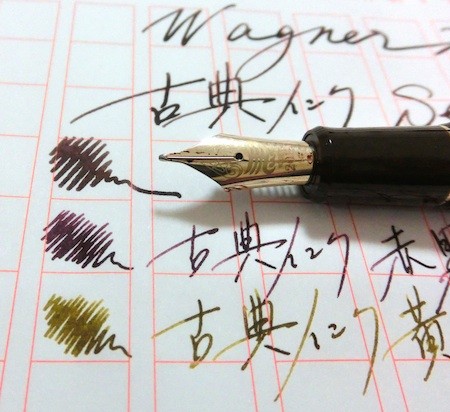 Wagner
古典インク S
古典インク 赤
古典インク 黄